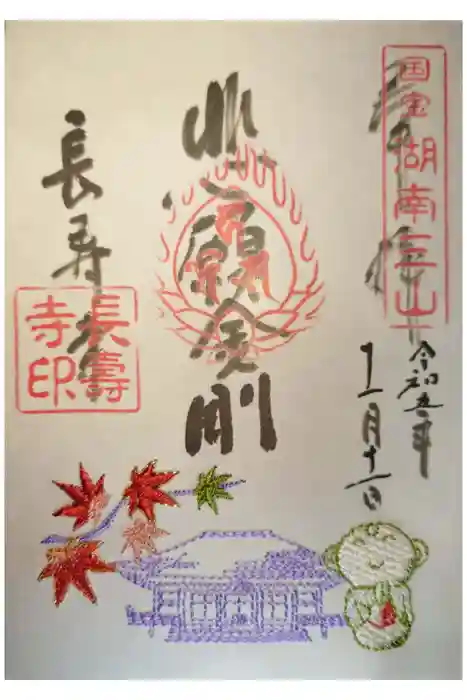 国宝湖南三山
奉拝
令和五年
十一月十一日
悲願金剛
長寿寺
長壽
寺印